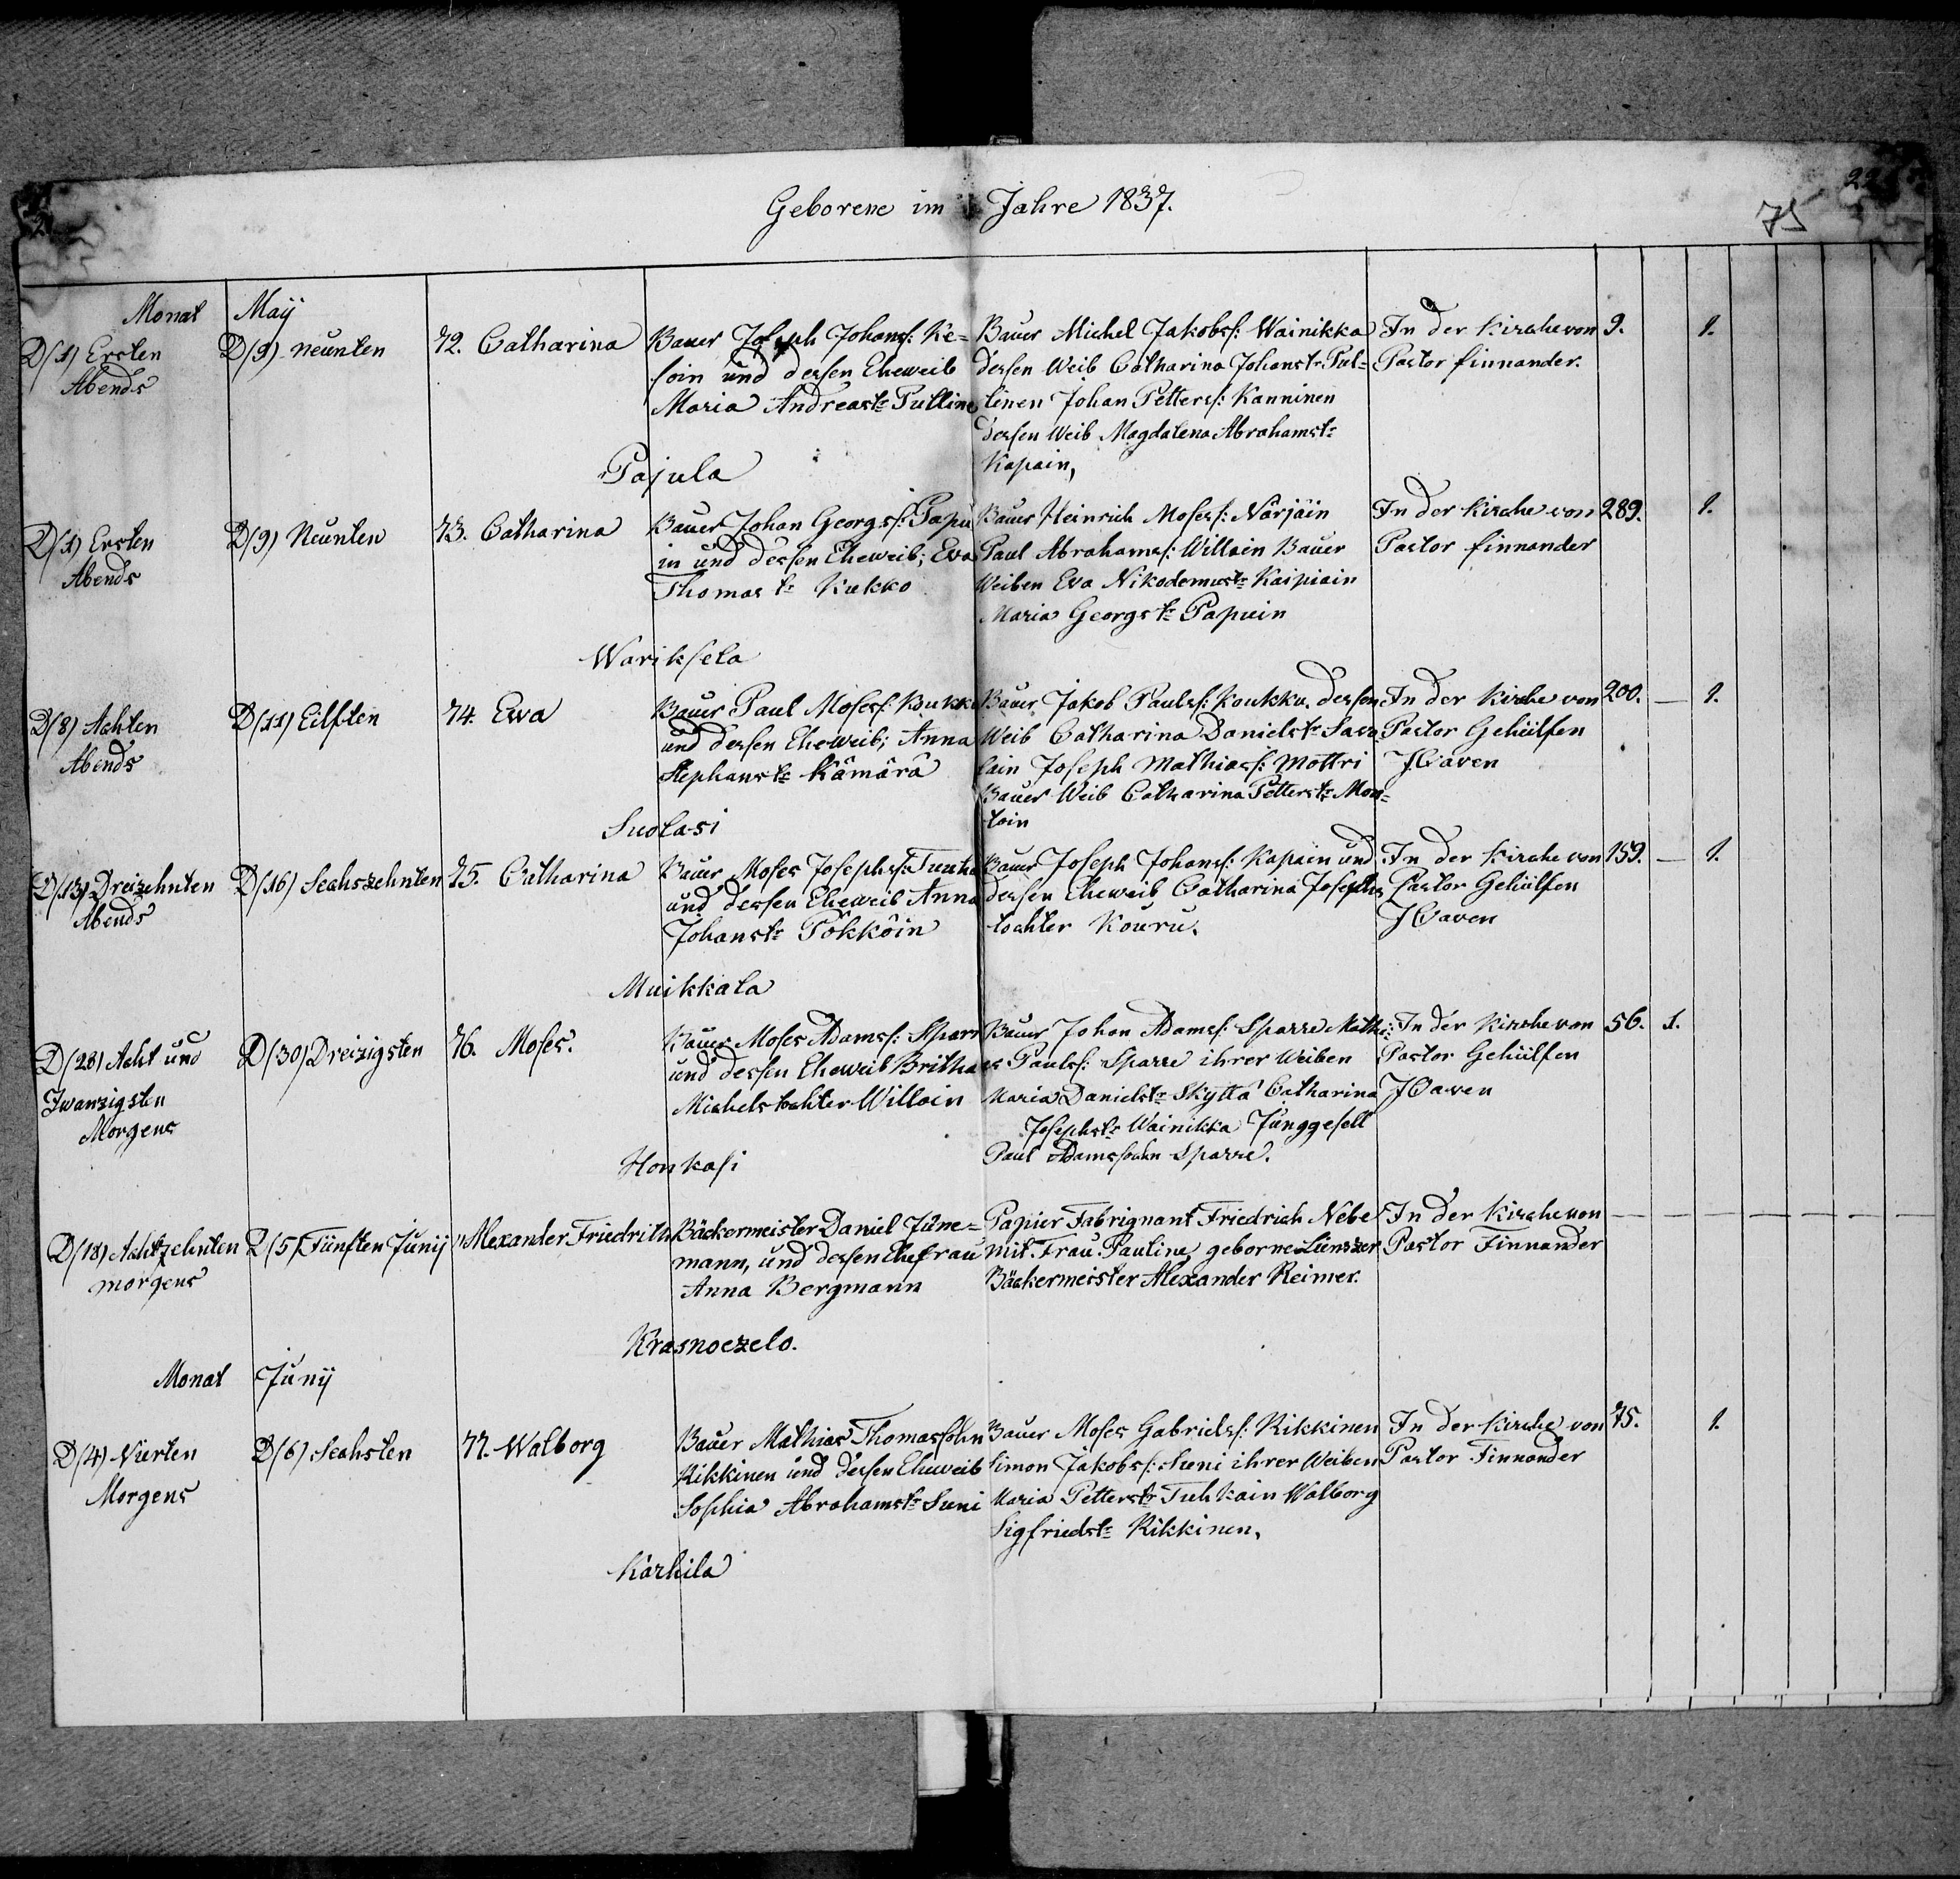 Geborene im Jahre 1837.
75
Monat May
D(1) Ersten
Abends
D(9) neunten
72. Catharina
Bauer Joseph Johans: Ke=
soin und dessen Eheweib
Maria Andreastr Pulline
Bauer Michel Jakobs: Wainikka
dessen Weib Catharina Johanstr Pul=
linen Johan Petters: Kanninen
dessen Weib Magdalena Abrahamstr
Kapain,
In der Kirche von
Pastor finnander.
9.
1.
Pajula
D(1) Ersten
Abends
D(9) Neunten
73. Catharina
Bauer Johan Georgs: Papu
in und dessen Eheweib; Eva
Thomas tr Kukko
Bauer Heinrich Moses: Närjäin
Paul Abrahams: Willain Bauer
Weiben Eva Nikodemustr Kaipiain
Maria Georgs tr Papuin
In der Kirche von
Pastor finnander
289.
1.
Wariksela
D(8) Achten
Abends
D(11) Eilften
74. Ewa
Bauer Paul Moses: Koukku
und dessen Eheweib; Anna
Stephanstr Kämärä
Bauer Jakob Pauls: Koukku. dessen
Weib Catharina Danielstr Sava
lain Joseph Mathias: Mottri
Bauer Weib Catharina Petterstr Mon=
toin
In der Kirche von
Pastor Gehülfen
JHaven
200. — 1.
Suolasi
D(13) Dreizehnten
Abends
D(16) Sechszehnten
75. Catharina
Bauer Moses Josephs: Tuuha
und dessen Eheweib Anna
Johanstr Pökköin
Bauer Joseph Johans: Kapain und
dessen Eheweib Catharina Josephs
tochter Kouru.
In der Kirche von
Pastor Gehülfen
JHaven
159. — 1.
Muikkala
D(28) Acht und
Zwanzigsten
Morgens
D(30) Dreizigsten
76. Moses.
Bauer Moses Adams: Sparr
und dessen Eheweib Britha
Michelstochter Willain
Bauer Johan Adams: Sparre Mathi:
as Pauls: Sparre ihrer Weiben
Maria Danielstr Skyttä Catharina
Josephstr Wainikka Junggesell
Paul Adamssohn Sparre.
In der Kirche von
Pastor Gehülfen
JHaven
56. 1.
Honkasi
D(18) Achtzehnten
morgens
D(5) Fünften Junij
"Alexander Friedrith
Bäckermeister Daniel June=
mann, und dessen Ehefrau
Anna Bergmann
Papier Fabriqnant Friedrich Nebe
mit. Frau. Pauline, geborne Lienszer
Bäckermeister Alexander Reimer.
In der Kirche von
Pastor Finnander
Krasnoezelo.
Monat Junij
D(4) Vierten
Morgens
D(6) Sechsten
77. Walborg
Bauer Mathias Thomassohn
Rikkinen und dessen Eheweib
Sophia Abrahamstr Suni
Bauer Moses Gabriels: Rikkinen
Simon Jakobs: Suni ihrer Weiben
Maria Petterstr Tuhkain Walborg
Sigfriedstr Rikkinen,
In der Kirche von
Pastor Finnander
75.
1.
Kärhila